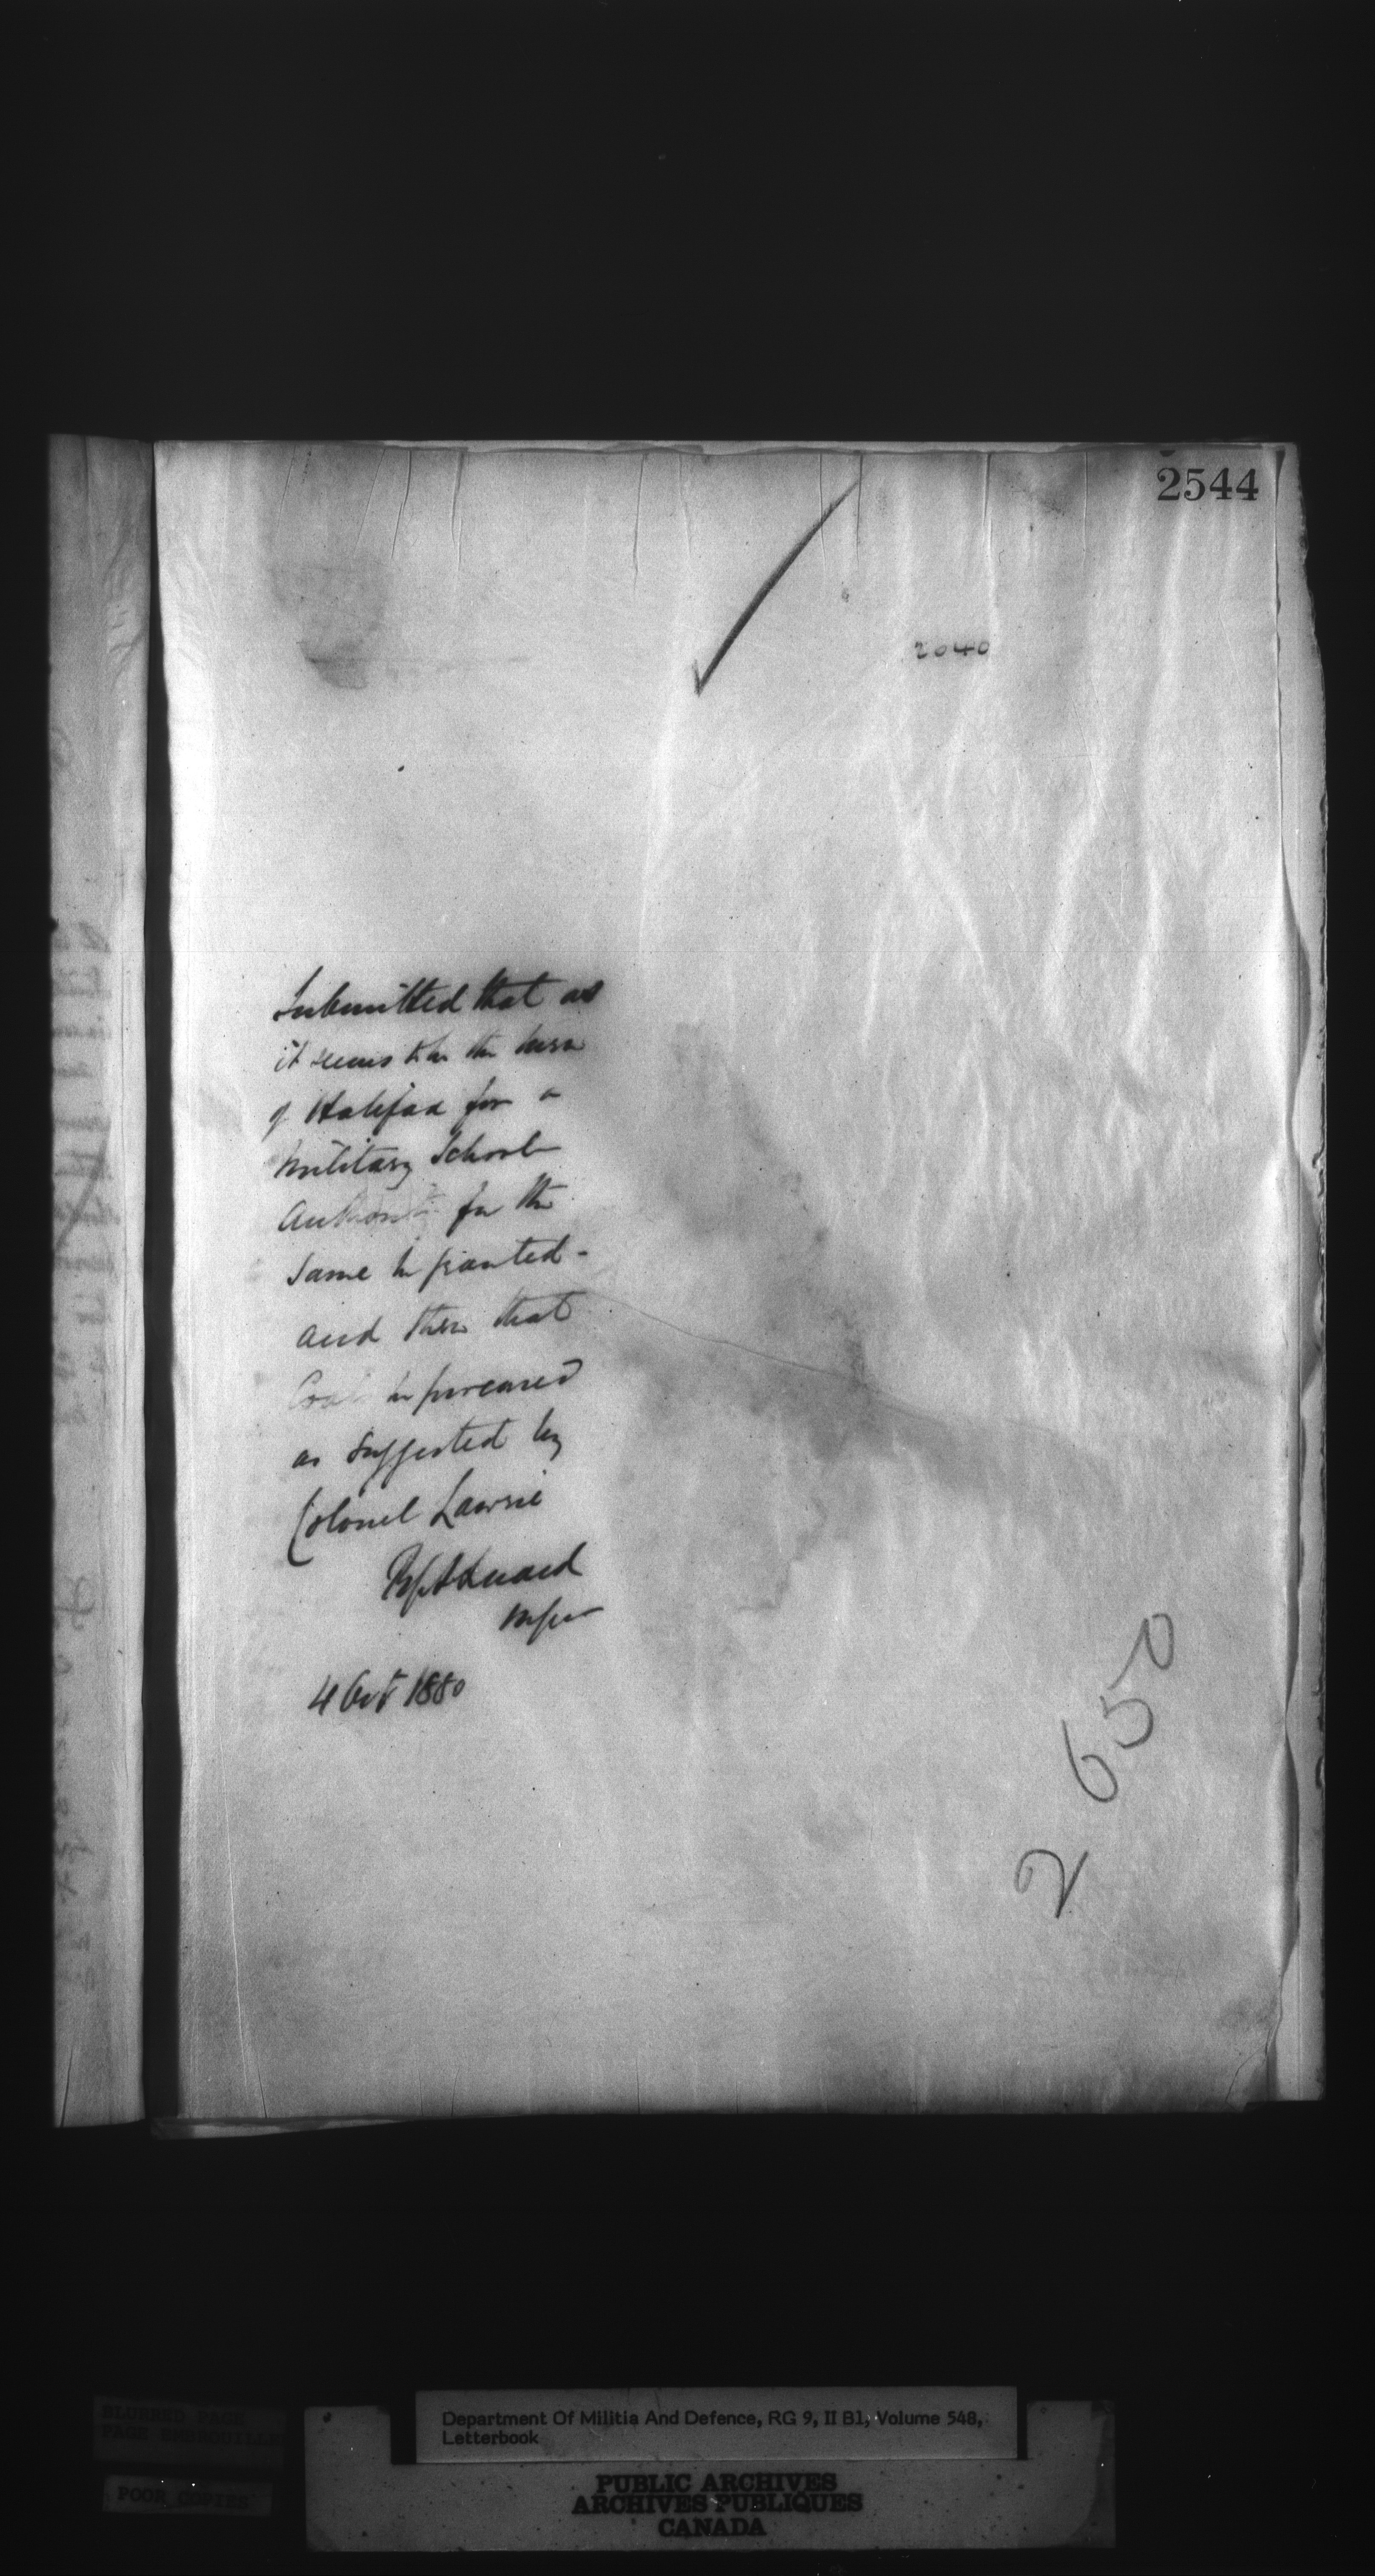 2544
2040
Submitted that as
it seems to be the turn
of Halifax for a
Military School
Authority for the
same be granted -
and then that
Coal be procured
as suggested by
Colonel Laurie
4 Oct 1880
2650
Department Of Militia And Defence, RG 9, II B1, Volume 548,
Letterbook
BLURRED PAGE
PAGE BROUILLE
POOR COPIES
PUBLIC ARCHIVES
ARCHIVES PUBLIQUES
CANADA